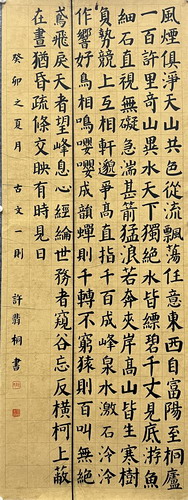 風煙俱淨天山共色從流飄蕩任意東西自富陽至桐廬
一百許里奇山異水天下獨絕水皆縹碧千丈見底游魚
細石直視無礙急湍甚箭猛浪若奔夾岸高山皆生寒樹
負勢競上互相軒邈爭高直指千百成峰泉水激石泠泠
作響好鳥相鳴嚶嚶成韻蟬則千轉不窮猿則百叫無絕
鳶飛戾天者望峰息心經綸世務者窺谷忘反橫柯上蔽
在晝猶昏疏條交映有時見日
癸卯之夏月 古文一則 許翡桐書